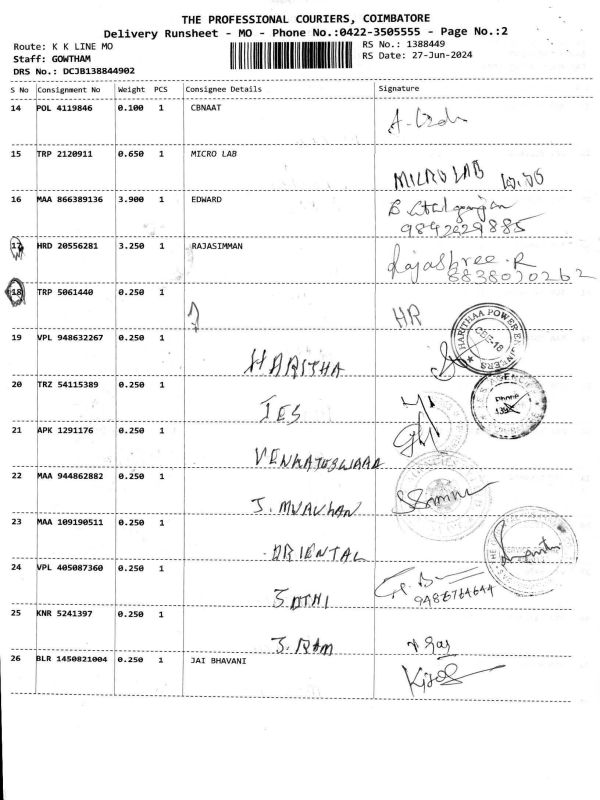 THE PROFESSIONAL COURIERS, COIMBATORE
Delivery Runsheet - MO - Phone No.:0422-3505555 - Page No.:2
Route: K K LINE MO
RS No.: 1388449
Staff: GOWTHAM
RS Date: 27-Jun-2024
DRS No.: DCJB138844902
S No Consignment No Weight PCS Consignee Details Signature
14 POL 4119846 0.100 1 CBNAAT
15 TRP 2120911 0.650 1 MICRO LAB
MICRO LAB
16 MAA 866389136 3.900 1 EDWARD
9842629885
17 HRD 20556281 3.250 1 RAJASIMMAN
Rajashree.R
8838070262
18 TRP 5061440 0.250 1
HR
19 VPL 948632267 0.250 1
HARITHA
HARITHAA POWER ENGINEERS
CBE-18
20 TRZ 54115389 0.250 1
IES
21 APK 1291176 0.250 1
22 MAA 944862882 0.250 1
23 MAA 109190511 0.250 1
ORIENTAL
24 VPL 405087360 0.250 1
9486764644
25 KNR 5241397 0.250 1
J. RAM
26 BLR 1450821004 0.250 1 JAI BHAVANI